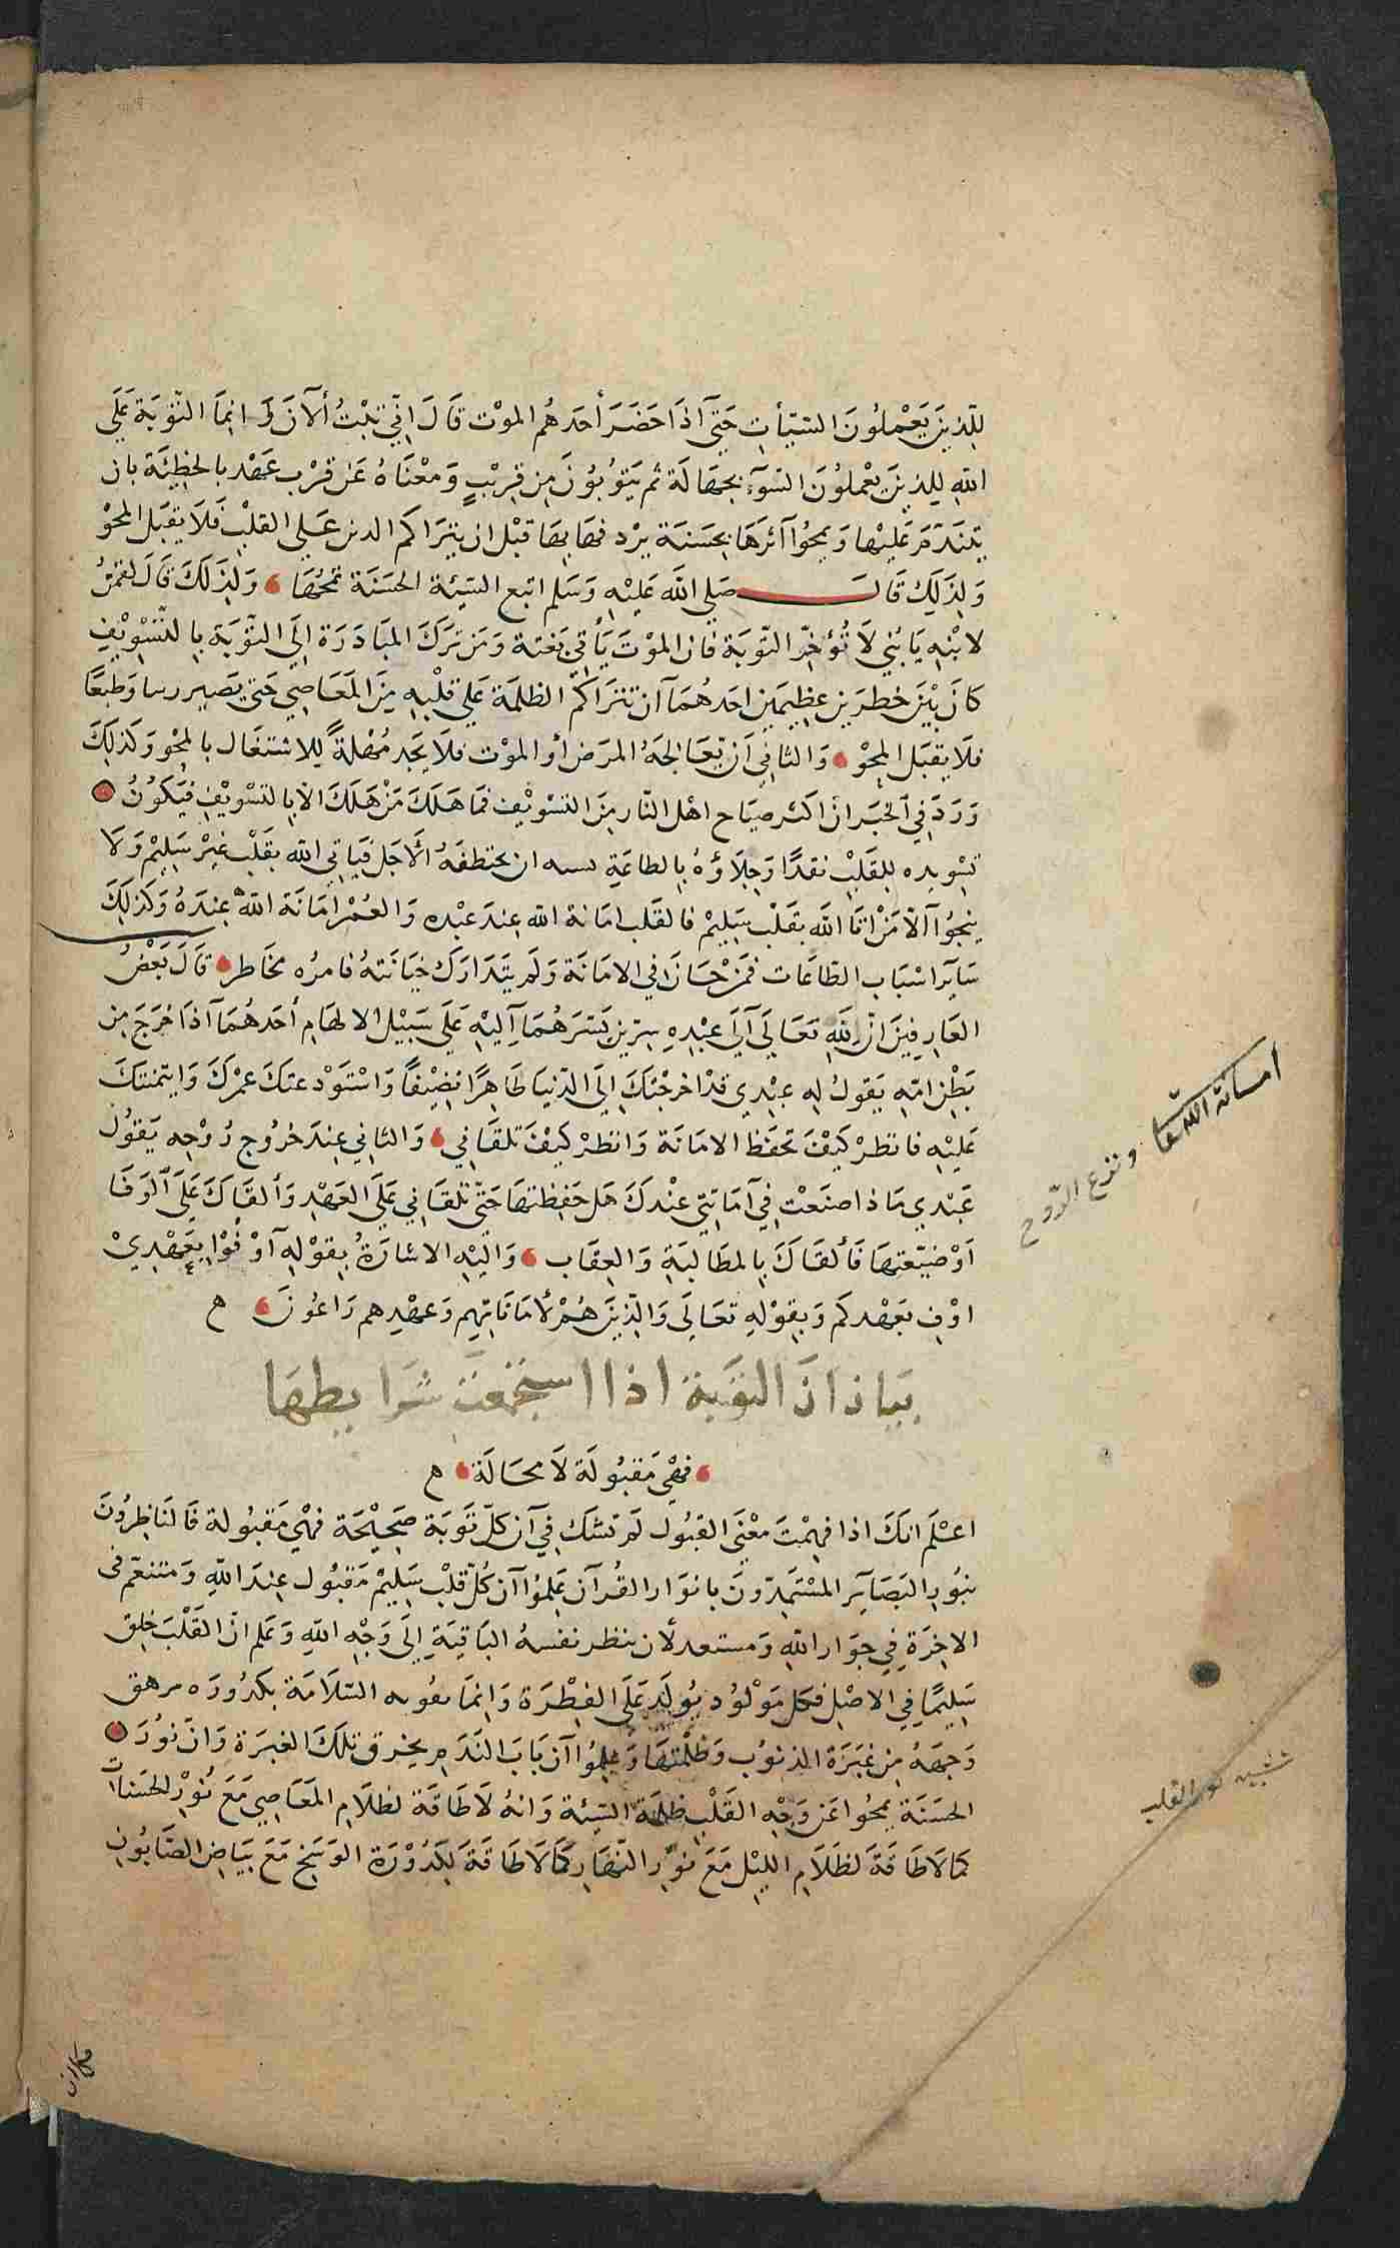 للّذِينَ يَعْملُونَ السّيّأتِ حَتّى آذَا حَضَرَ أحَدهُم الموْت قَالَ إنّي تبْتُ ألآنَ وَ انمَا التّوْبَة عَلَي
اللهِ لِلذِينَ يعْملُوْنَ السّوَءَ بجهَالَة ثم يَتُوْبُوْنَ مِن قِرِيْبٍ وَمعْنَاهُ عَن قرْب عَهْد بالخطِئَة بان
يتندّمَ عَليْها وَيمحُوا آثرَهَا بِحَسَنَة يرْد فهَا بهَا قبْل ان يتَرَاكم الدين عَلى القلبْ فلَا يَقبَل المحْو
وَلِذلِكَ قَالَ صَلي الله عَليْهِ وَسَلم اتبع السّيئة الحسَنَة تمحُهَا وَلِذَلكَ قَالَ لقمنُ
لابْنِهِ يَابُنيّ لَا تُؤخِرّ التّوْبَة فان الموْتَ يَأتي بَغتَة وَمَن تَرَكَ المبَادَرَة إلَى التّوْبَة بِالتّسْوِيْفِ
كانَ بَيْنَ خطرَين عظِيمَين احَدهُمَا آن تتَرَاكمَ الظلمَة عَلي قلبْهِ مِنَ المعَاصِي حَتى يَصير رينا وَطبعًا
فلَا يقبَل المحْوْ وَالثاني آن يّعَالجَهُ المرَض أو الموْت فلَا يجَد مُهْلةً للاشتغَال بالمحْو وَكذلِكَ
وَرَدَ فِي الخبَر انّ اكثر صيَاح اهْل النّار مِنَ التسْوِيْف فمَا هَلَكَ مَنْ هَلَكَ الّا بالتسْوِيْفِ فيَكوُنُ
تسْوِيده للقَلبْ نقدًا وَجِلَاؤهُ بِالطاعَةِ نسيه ان يختطفَهُ الأجَل فيَاتي الله بقَلب غيْر سَلِيْم وَلَا
ينجُوا آلّا مَنْ اتَا الله بقَلب سَلِيْم فالقَلب امَانة الله عِندَ عبْدِه وَالعُمْر امَانَة الله عِندَهُ وَكذلِكَ
سَآير اسْبَاب الطاعَات فمَنْ خَانَ في الامَانَة وَلَم يتَدَارَك خيَانَتهُ فامرُه مخَاطر قَالَ بَعْضُ
العَارِفِينَ انّ لله تعَالى آلى عبْدِهِ سِرّين يَسَرهُمَا آلِيْهِ عَلَى سَبِيْل الالهَام أحَدهُمَا آذَا خرَجَ مِن
بَطْنِ امّهِ يَقولُ لهِ عبْدي قدْ اخرجْتكَ إلَى الدّنيا طَاهِرًا نضِيْفًا وَاسْتَوْدعتكَ عمْركَ وَايتمنتكَ
عَليْهِ فانظرْ كيْفَ تحفَظ الامَانَة وَانظرْ كيْفَ تلقَاني وَالثاني عِندَ خرُوج رُوْحِه يَقوُل
عَبْدي مَاذا صنَعْت فِي آمَانَتي عنْدكَ هَل حَفِظتهَا حَتّى تلقَاني عَلَى العَهْدِ وَألقَاكَ عَلَى آلوَفَا
اَوْ ضيّعْتهَا فَألقَاكَ بِالمطَالبَةِ وَالعِقَاب وَاليْهِ الاشارَةُ بِقوْلهِ آوْفُوْا بعَهْدِيْ
اوْفِ بَعهْدكم وَبِقوْلهِ تعَالَى وَالّذِينَ هُمْ لأمَانَاتِهِم وَعهْدِهم رَاعُونَ ه
بيَان انّ التوبَة اذا استجْمعَت شرَايطهَا
فهْي مَقبُولَة لَا محَالَة ه
اعْلمَ انكَ اذا فهِمْتَ معْنَى القبُول لَم تشكّ فِي آن كلّ تَوبَة صَحِيْحَة فهْي مَقبُولة فَالنَاظِرُونَ
بنُورِ البَصَايرِ المسْتَمِدّونَ بانوَار القُرآن عَلِمُوا آن كُلّ قَلْب سَلِيْم مَقبُول عِندَ اللهِ وَمتنعّم فى
الاخِرَةِ فِي جوَار اللهِ وَمستعد لأن ينظر نفسهُ البَاقِيَةِ إلَى وَجْهِ اللهِ وَعَلم انّ القَلبْ خلِق
سَلِيمًا فِي الاصْل فكل مَوْلوُد يُولَد عَلَى الفِطْرَة وَانمَا يفوته السّلَامَة بكدُورَه ترهق
وَجهَهُ مِن غبَرَة الذنوُب وَظلمْتهَا وَعَلِمُوا آن نَارَ النّدَم يخرق تلكَ الغبرَة وَانّ نوُرَ
الحسَنَة يمحُوا عَن وَجْهِ القَلْبِ ظلمَة السّيئة وَانهُ لَا طَاقَة لظلَام المعَاصِي مَعَ نُوْرِ الحسَنات
كمَا لَا طَاقَة لظلَام الليْل مَعَ نوُرِ النّهَار كمَا لَا طَاقَة لِكَدُوْرَة الوَسَخ مَعَ بَيَاض الصَّابُون
امانة الله تعا
ونزع الروح
تشبيه نور القلب
فكما ان